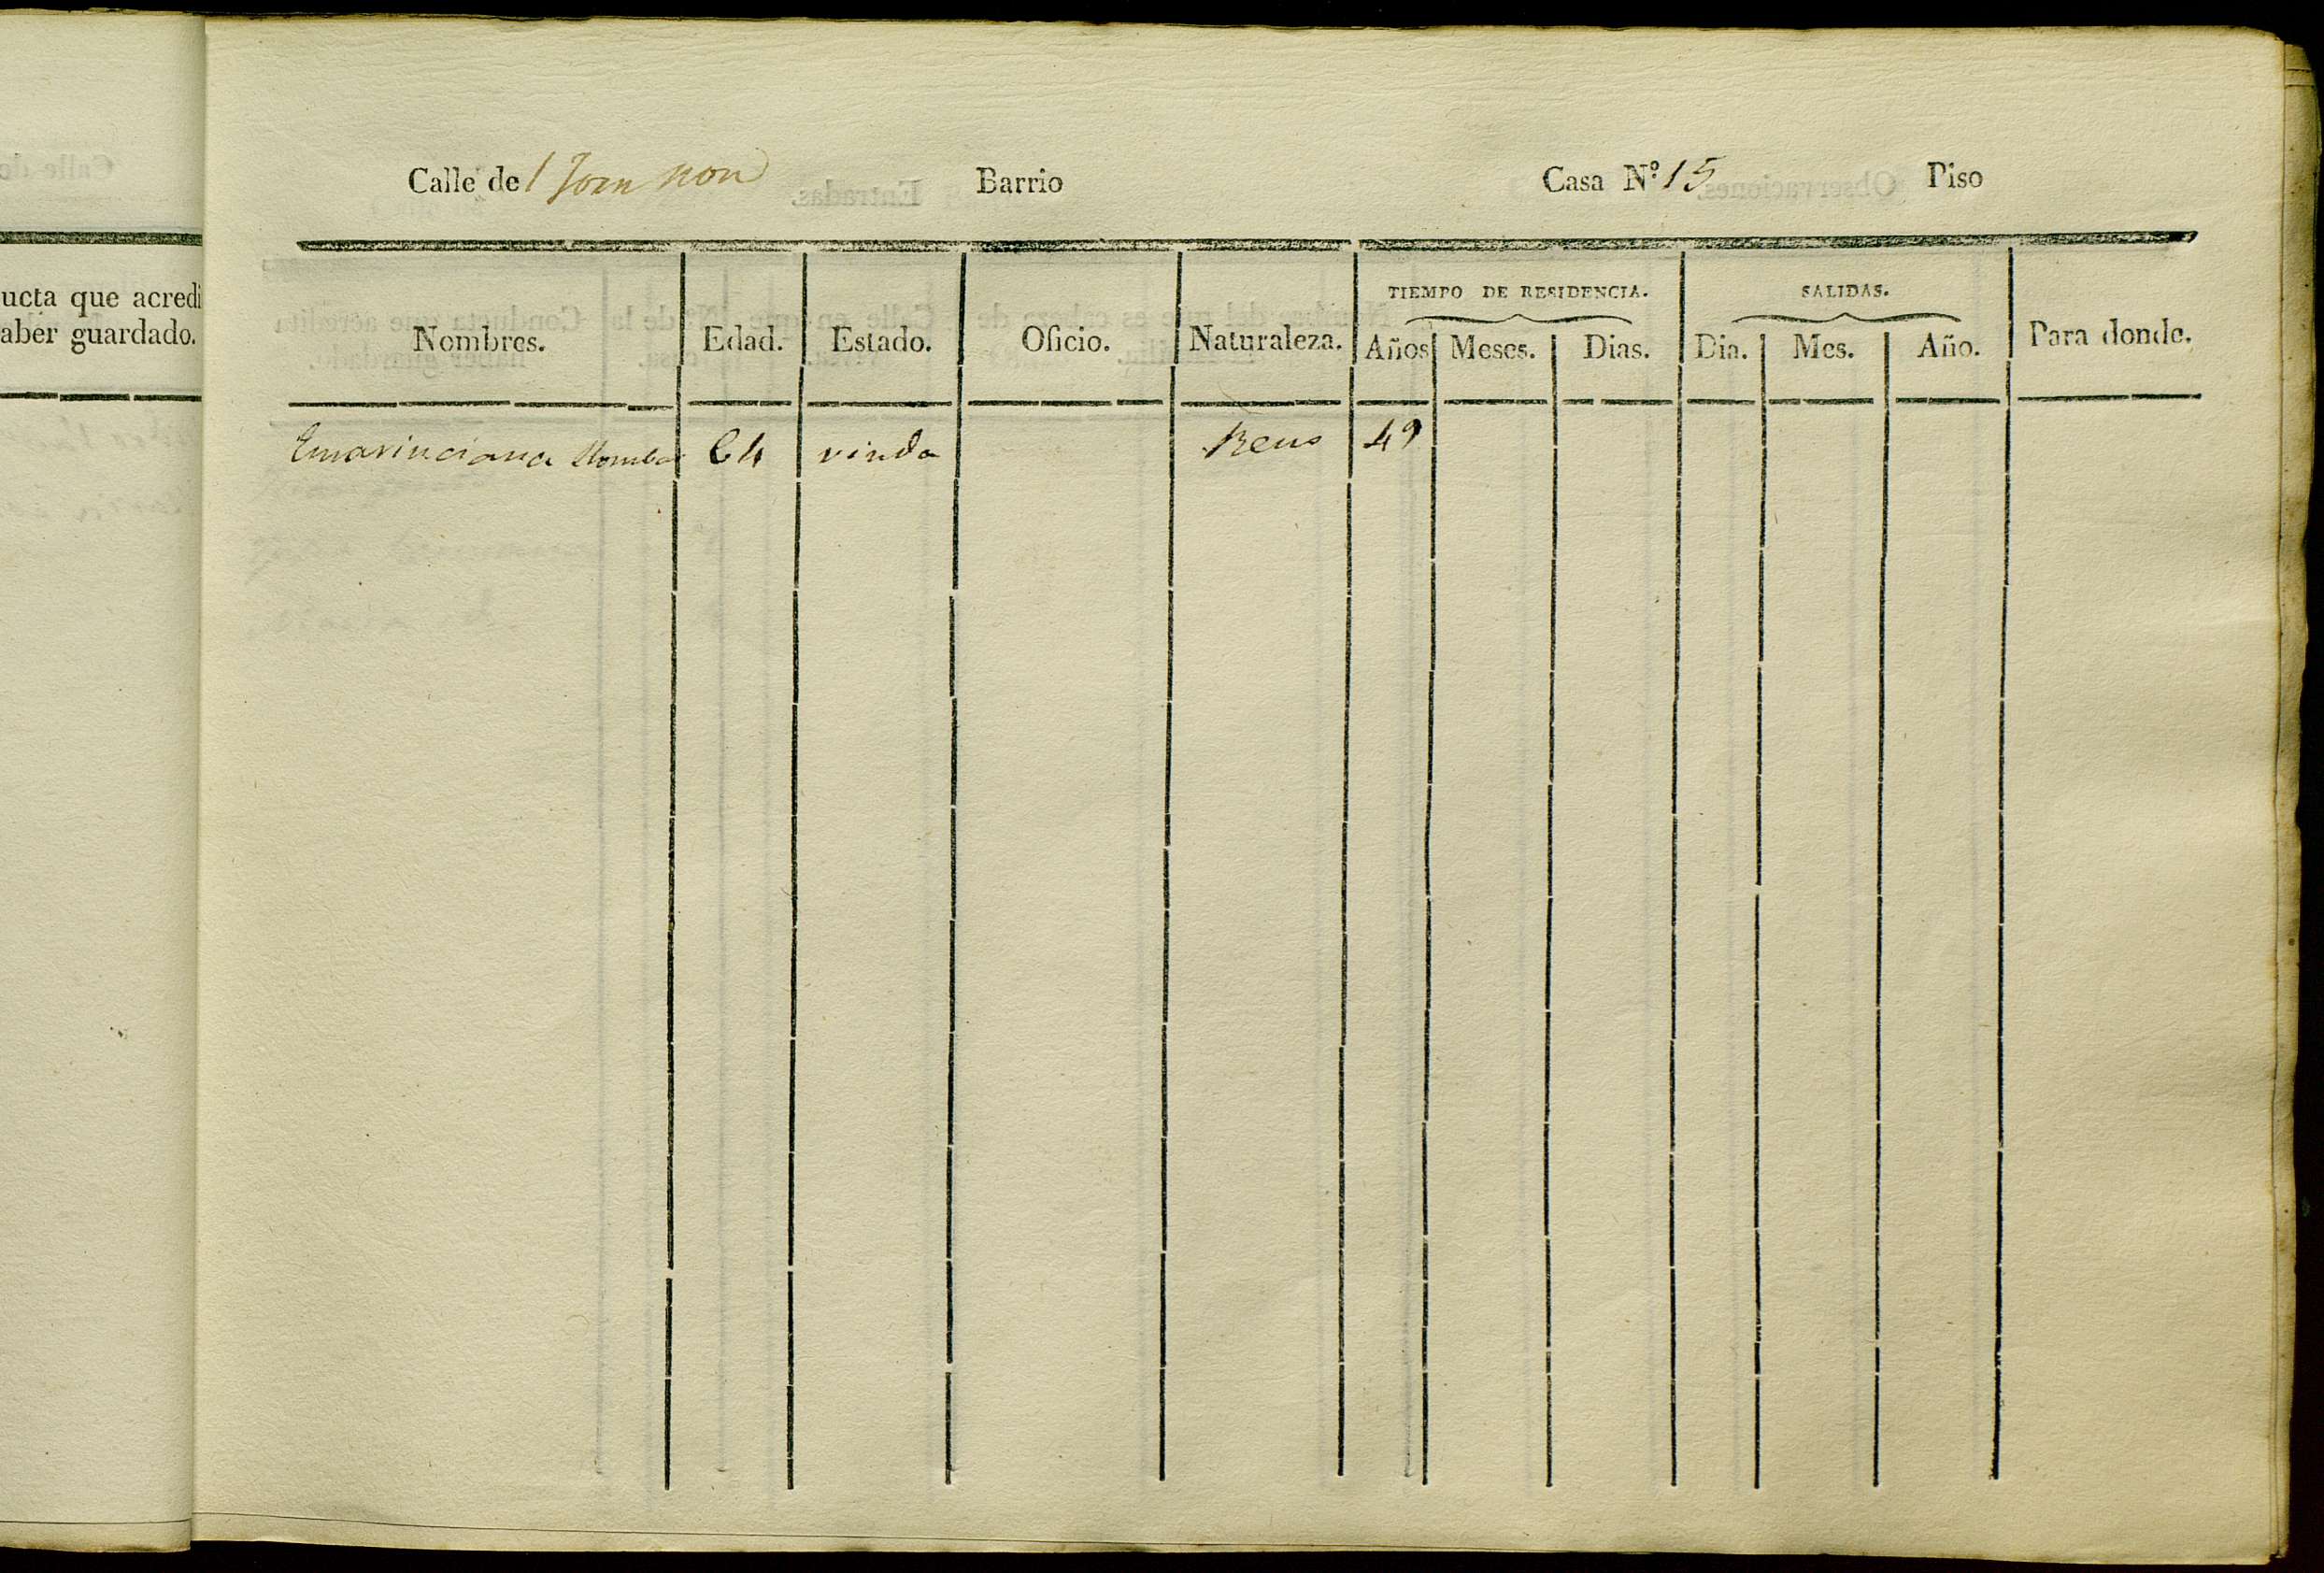 ucta que acredi
aber guardado.
Calle de 1 Joan non Barrio Casa N.º 15 Piso
TIEMPO DE RESIDENCIA. SALIDAS.
Nombres. Edad. Estado. Oficio. Naturaleza. Años Meses. Dias. Dia. Mes. Año. Para donde.
64 viuda Reus 49